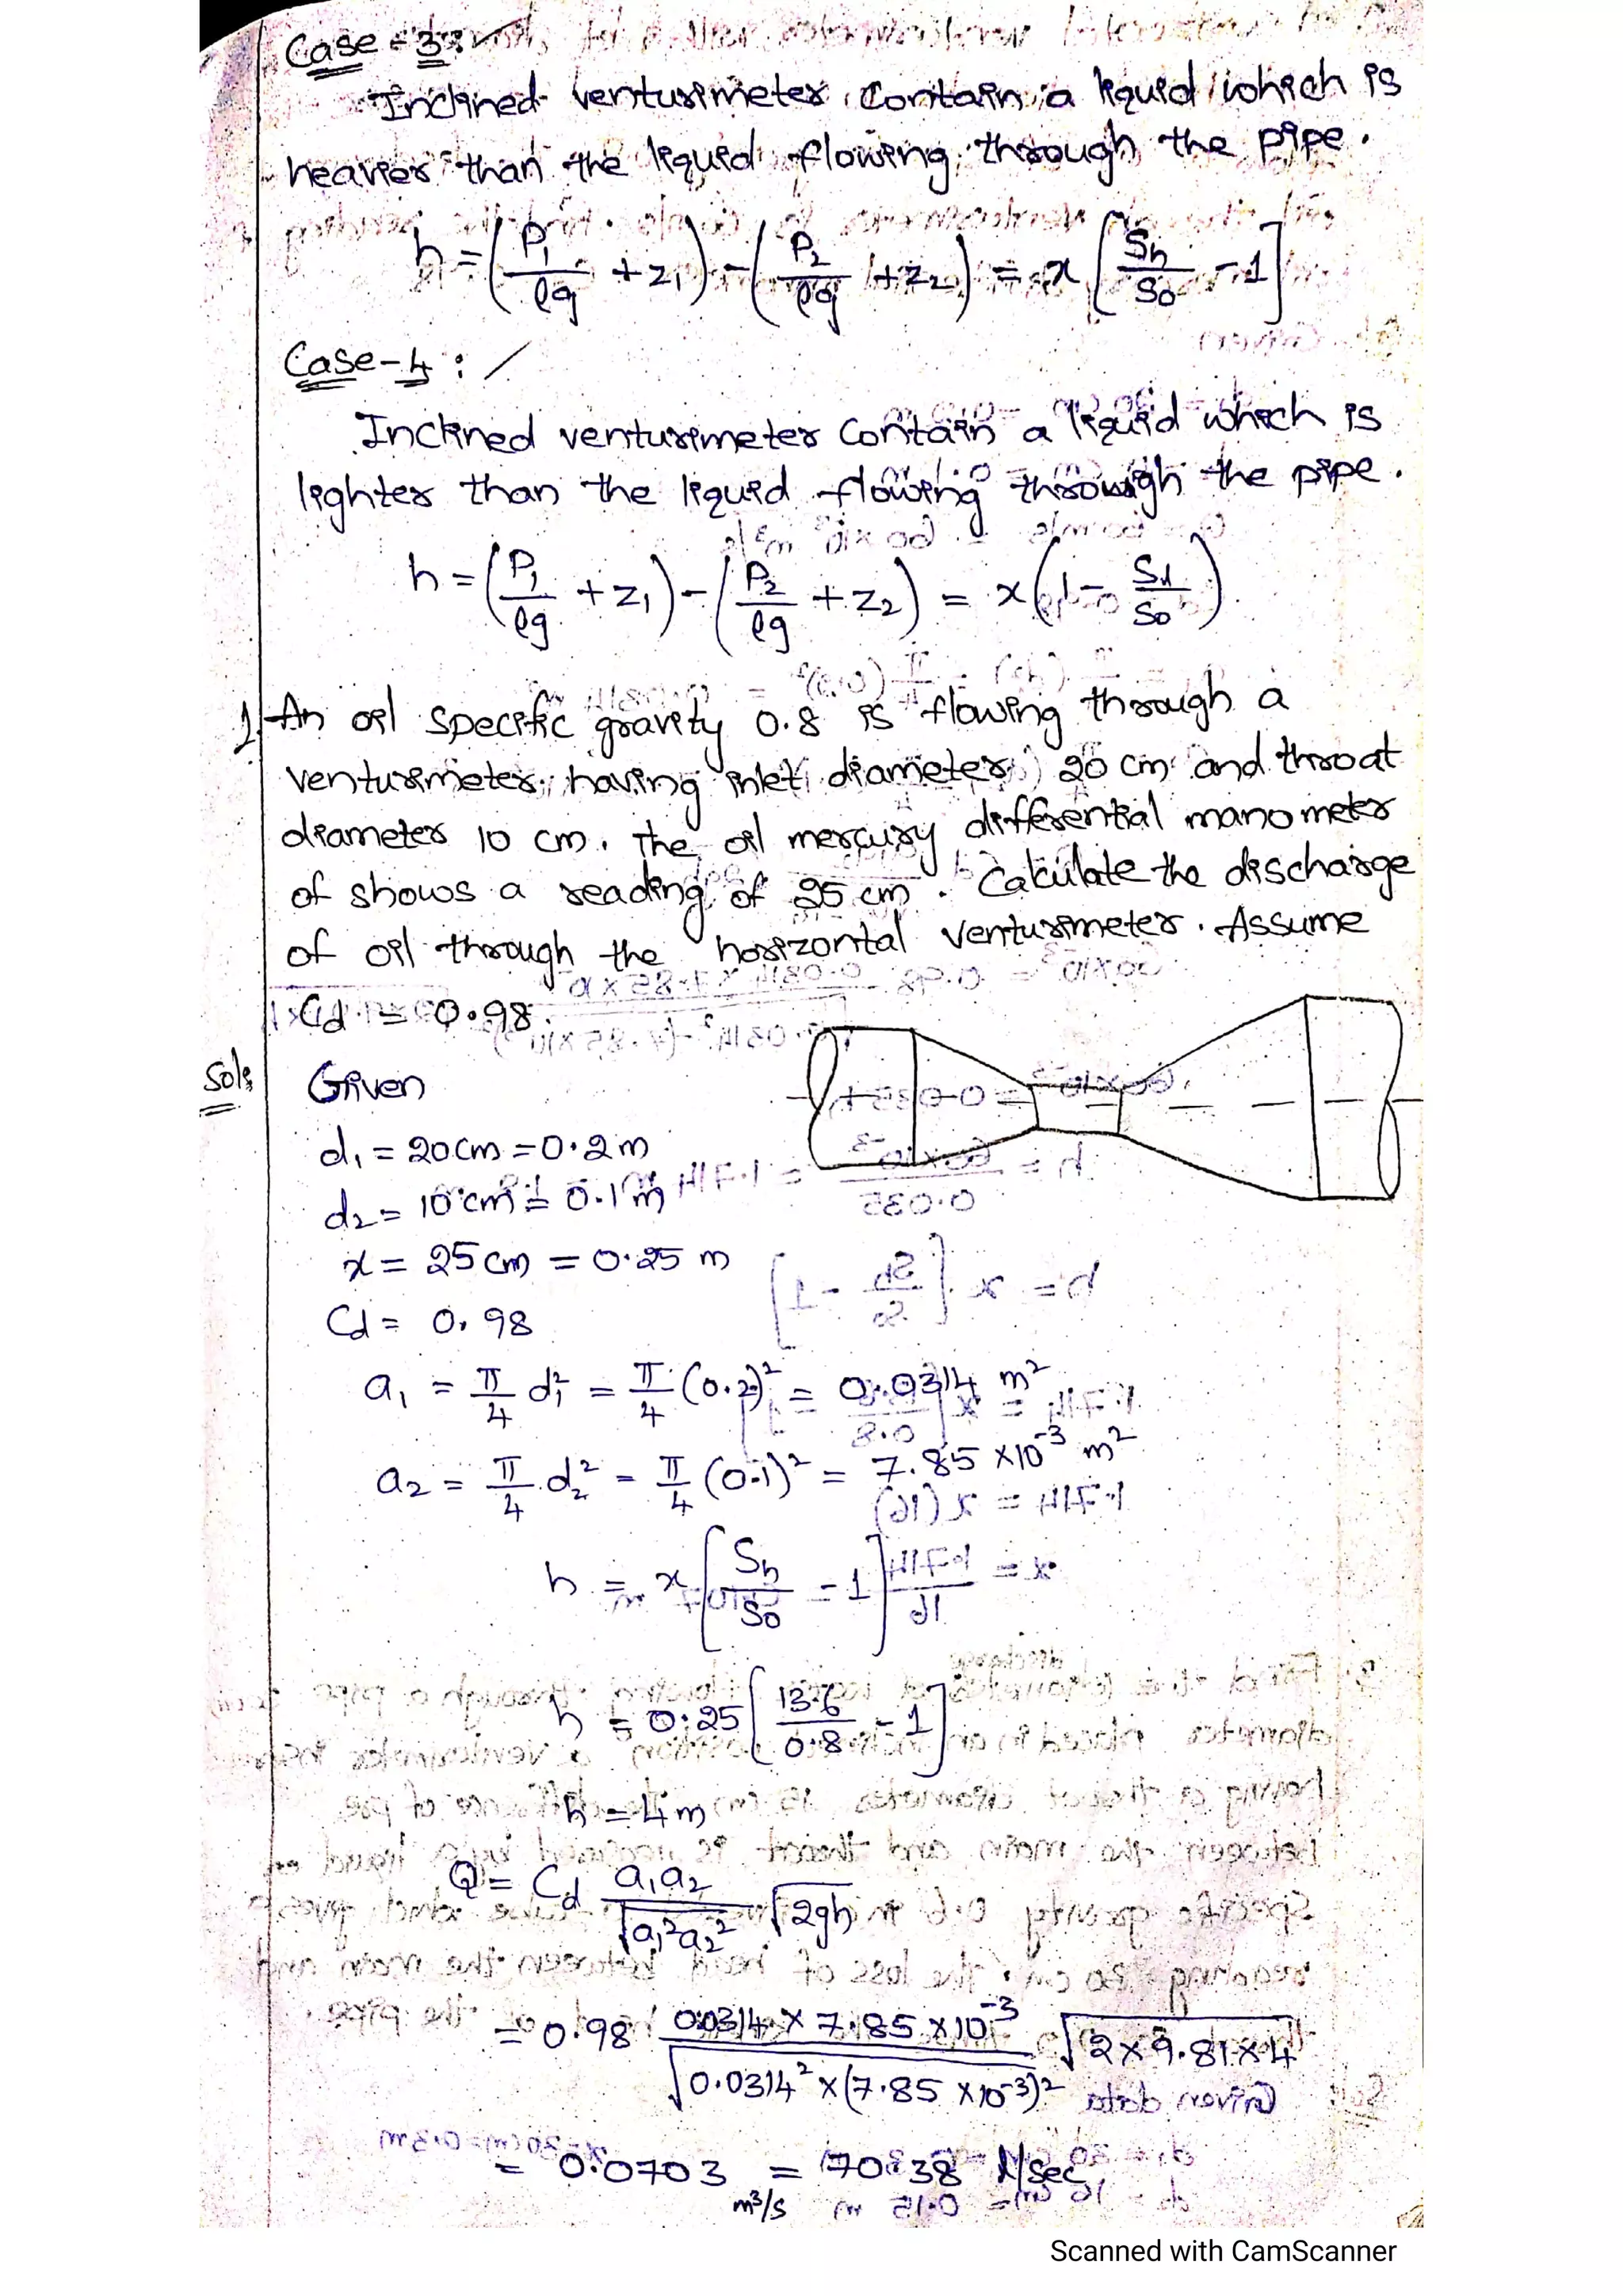 Case - 3 :
Inclined venturimeter contain a liquid which is
heavier than the liquid flowing through the pipe.
h = (P₁/ρg + z₁) - (P₂/ρg + z₂) = x [Sh/So - 1]
Case - 4 :
Inclined venturimeter contain a liquid which is
lighter than the liquid flowing through the pipe.
h = (P₁/ρg + z₁) - (P₂/ρg + z₂) = x (1 - Sl/So)
1. An oil specific gravity 0.8 is flowing through a
venturimeter having inlet diameter 20 cm and throat
diameter 10 cm. The oil mercury differential manometer
of shows a reading of 25 cm. Calculate the discharge
of oil through the horizontal venturimeter. Assume
Cd = 0.98.
Sol: Given
d₁ = 20cm = 0.2m
d₂ = 10 cm = 0.1 m
x = 25 cm = 0.25 m
Cd = 0.98
a₁ = π/4 d₁² = π/4 (0.2)² = 0.0314 m²
a₂ = π/4 d₂² = π/4 (0.1)² = 7.85 ×10⁻³ m²
h = x [Sh/So - 1]
h = 0.25 [13.6/0.8 - 1]
h = 4 m
Q = Cd a₁a₂/√(a₁²a₂²) √(2gh)
= 0.98 0.0314 × 7.85 ×10⁻³/√(0.0314² × (7.85 ×10⁻³)²) √(2×9.81×4)
= 0.0703 m³/s = 70.38 l/sec
Scanned with CamScanner